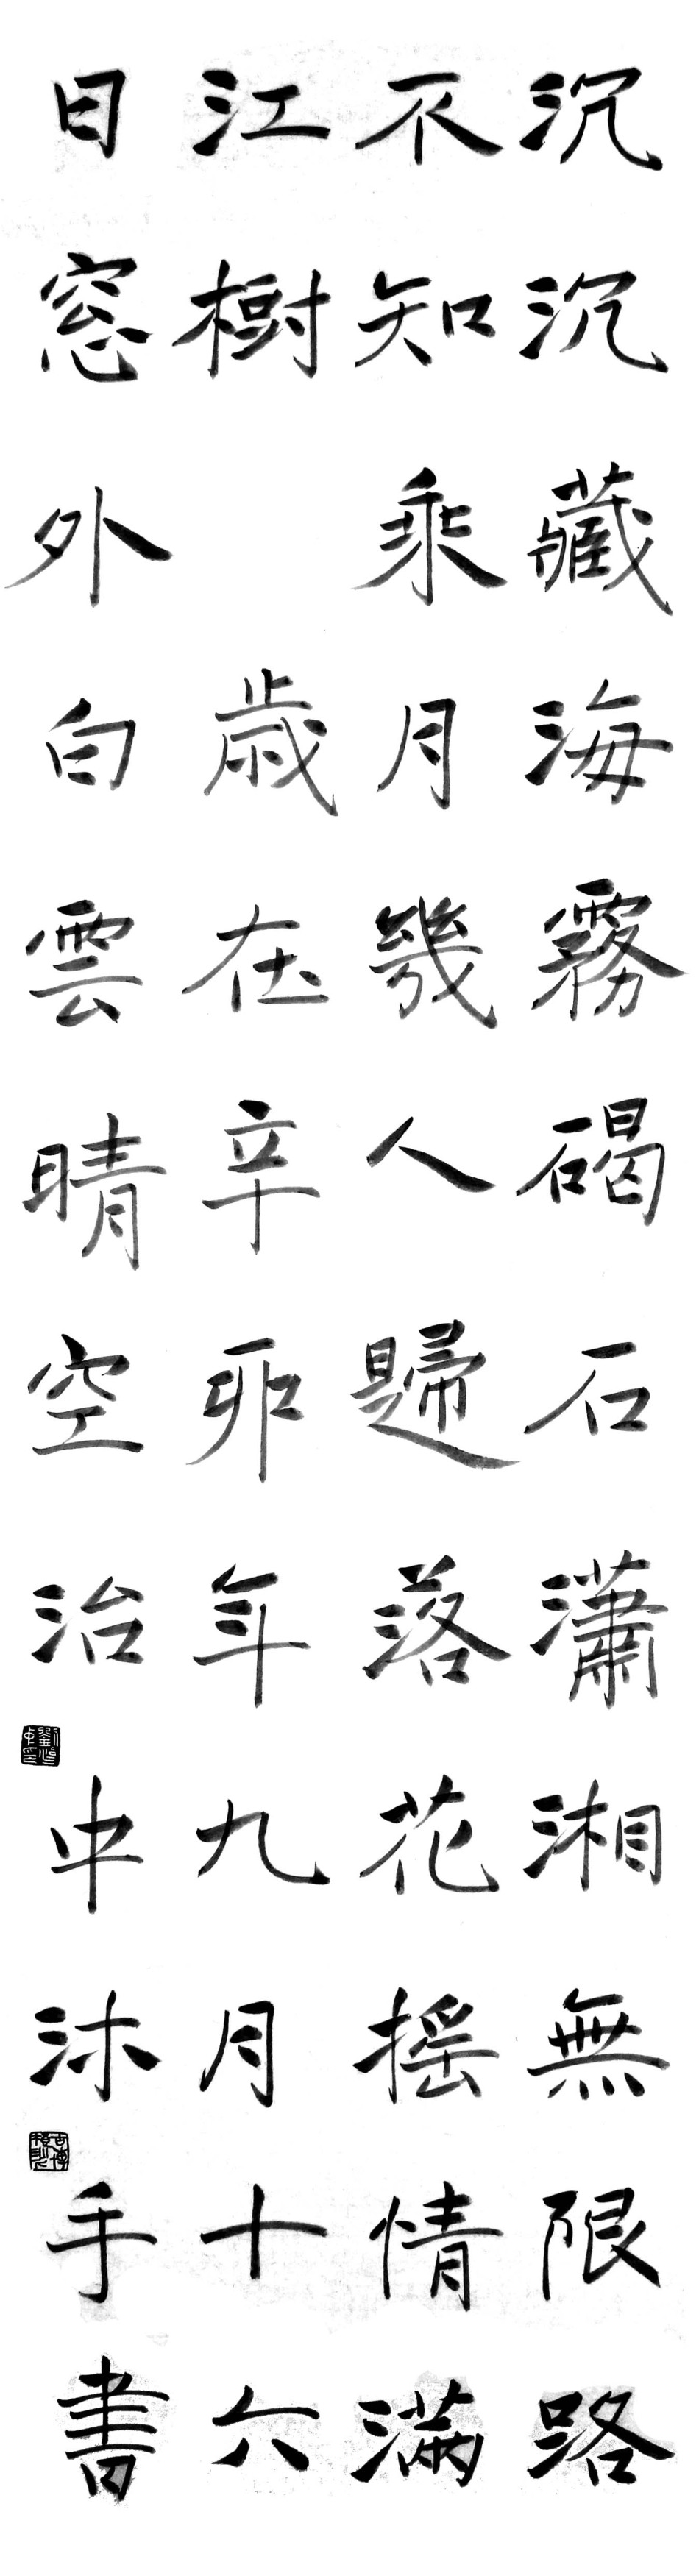 沉沉藏海霧碣石瀟湘無限路
不知乘月幾人歸落花摇情滿
江樹 歲在辛卯年九月十六
日窓外白雲晴空治中沐手書